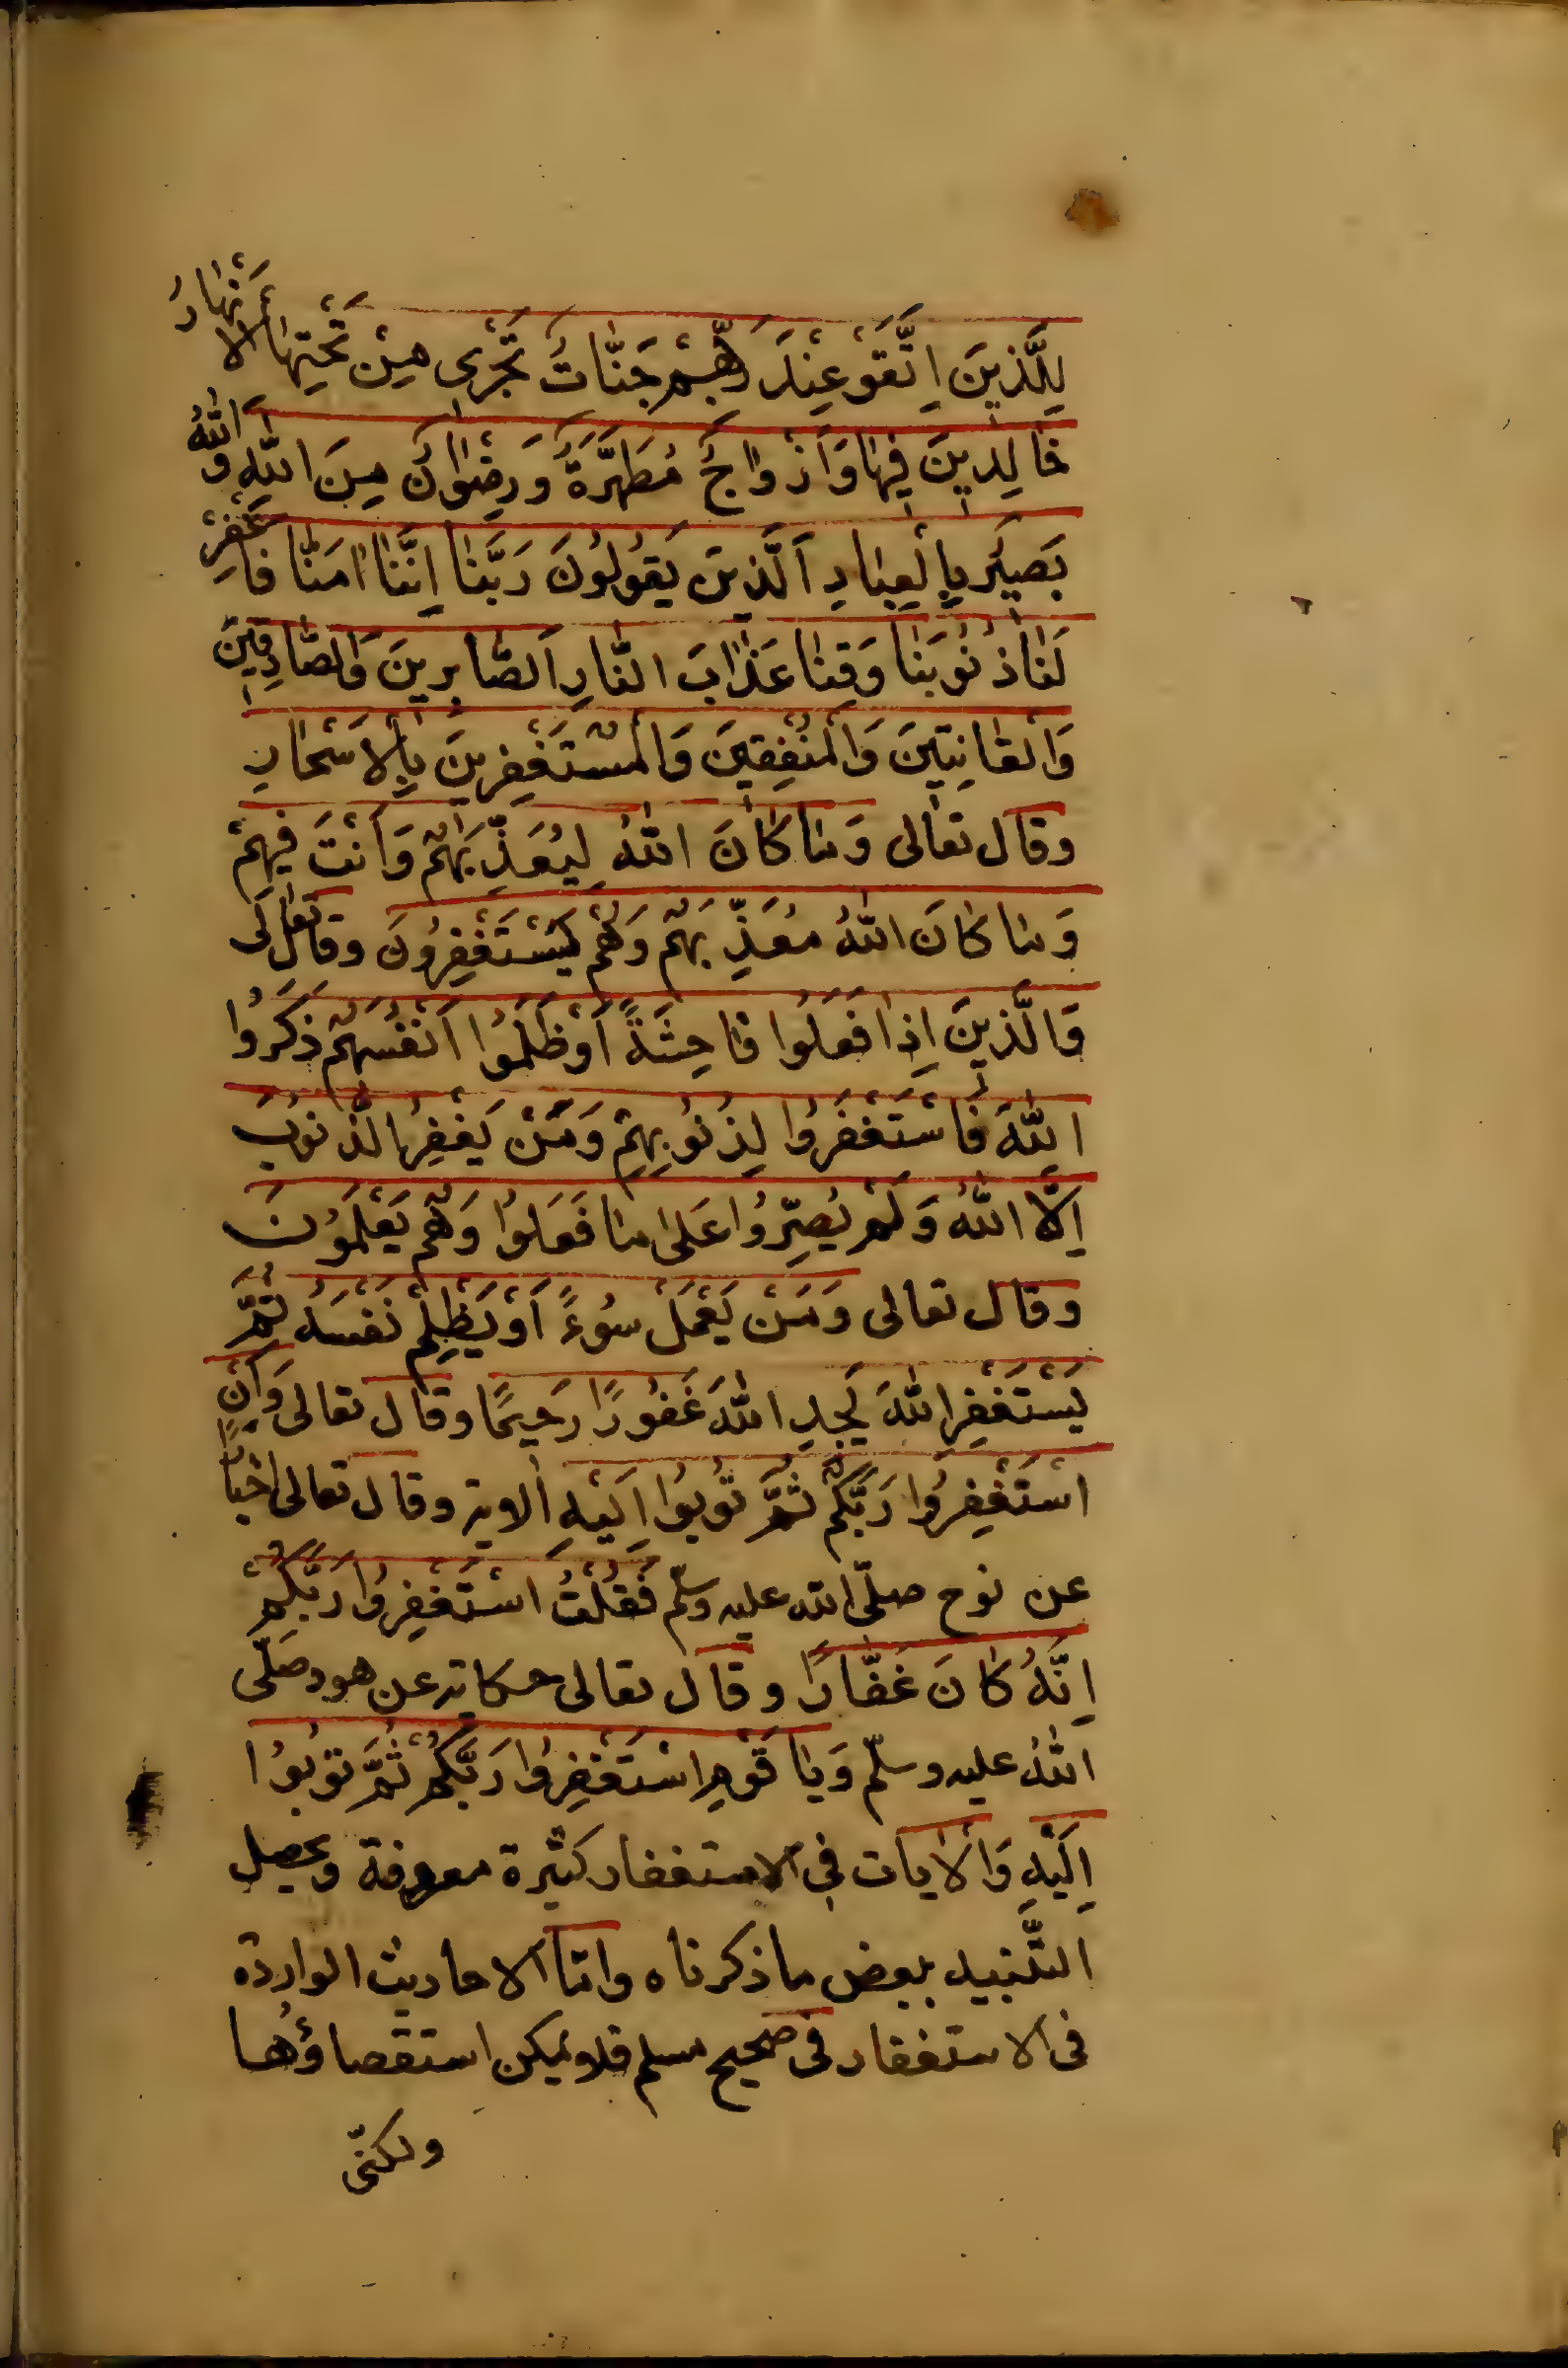 لِلَّذينَ اِتَّقَوْ عِنْدَ رَبِّهِمْ جَنَّاتٌ تَجْري مِنْ تَحْتِهَا الْاَنْهَارُ
خَالِدينَ فِيهَا وَاَزْوَاجٌ مُطَهَّرَةٌ وَرِضْوَانٌ مِنَ اللّٰهِ وَاللّٰهُ
بَصيرٌ بِالْعِبَادِ اَلَّذينَ يَقُولُونَ رَبَّنَا اِنَّنَا اٰمَنَّا فَاغْفِرْ
لَنَا ذُنُوبَنَا وَقِنَا عَذَابَ النَّارِ اَلصَّابِرينَ وَالصَّادِقينَ
وَالْقَانِتينَ وَالْمُنْفِقينَ وَالْمُسْتَغْفِرينَ بِالْاَسْحَارِ
وقال تعالى وَمَا كَانَ اللّٰهُ لِيُعَذِّبَهُمْ وَاَنْتَ فِيهِمْ
وَمَا كَانَ اللّٰهُ مُعَذِّبَهُمْ وَهُمْ يَسْتَغْفِرُونَ وقال تعالى
وَالَّذينَ اِذَا فَعَلُوا فَاحِشَةً اَوْ ظَلَمُوا اَنْفُسَهُمْ ذَكَرُوا
اللّٰهَ فَاسْتَغْفَرُوا لِذُنُوبِهِمْ وَمَنْ يَغْفِرُ الذُّنُوبَ
اِلَّا اللّٰهُ وَلَمْ يُصِرُّوا عَلٰى مَا فَعَلُوا وَهُمْ يَعْلَمُونَ
وقال تعالى وَمَنْ يَعْمَلْ سُوءً اَوْ يَظْلِمْ نَفْسَهُ ثُمَّ
يَسْتَغْفِرِ اللّٰهَ يَجِدِ اللّٰهَ غَفُورًا رَحيمًا وقال تعالى وَاَنِ
اسْتَغْفِرُوا رَبَّكُمْ ثُمَّ تُوبُوا اِلَيْهِ الاية وقال تعالى اخبارًا
عن نوح صلّى الله عليه وسلّم فَقُلْتُ اسْتَغْفِرُوا رَبَّكُمْ
اِنَّهُ كَانَ غَفَّارًا وقال تعالى حكاية عن هود صلّى
اللّٰهُ عليه وسلّم وَيَا قَوْمِ اسْتَغْفِرُوا رَبَّكُمْ ثُمَّ تُوبُوا
اِلَيْهِ وَالْاٰيات في الاستغفار كثيرة معروفة ويحصل
التَّنبيه ببعض ما ذكرناه وامّا الاحاديث الواردة
في الاستغفار في صحيح مسلم فلا يمكن استقصاؤُها
ولكنّى